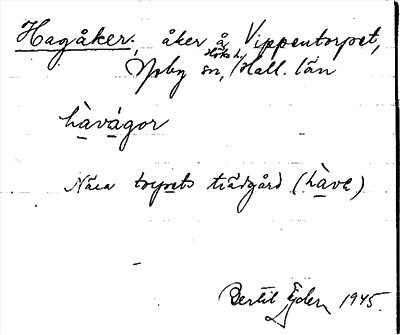 Hagåker, åker å Vippentorpet,
Ysby sn, Höks h., Hall. län
hàvágor
Nära torpets trädgård (hàve)
Bertil Ejder 1945.